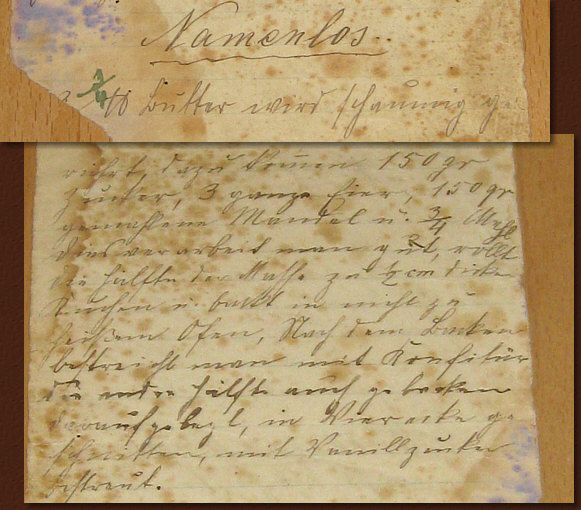 Namenlos.
3/4 ℔ Butter wird schaumig ge
rührt, dazu kommen 150 gr
Zucker, 3 ganze Eier, 150 gr
gemahlene Mandel u. 3/4 Mehl
dies verarbeitet man gut, rollt
die Hälfte der Masse zu 1/2 cm dicke
Kuchen u. backt in nicht zu
heißem Ofen, Nach dem Backen
bestreicht man mit Konfitür
die andre Hälfte auch gebacken
daraufgelegt, in Vierecke ge
schnitten, mit Vanillzucker
bestreut.